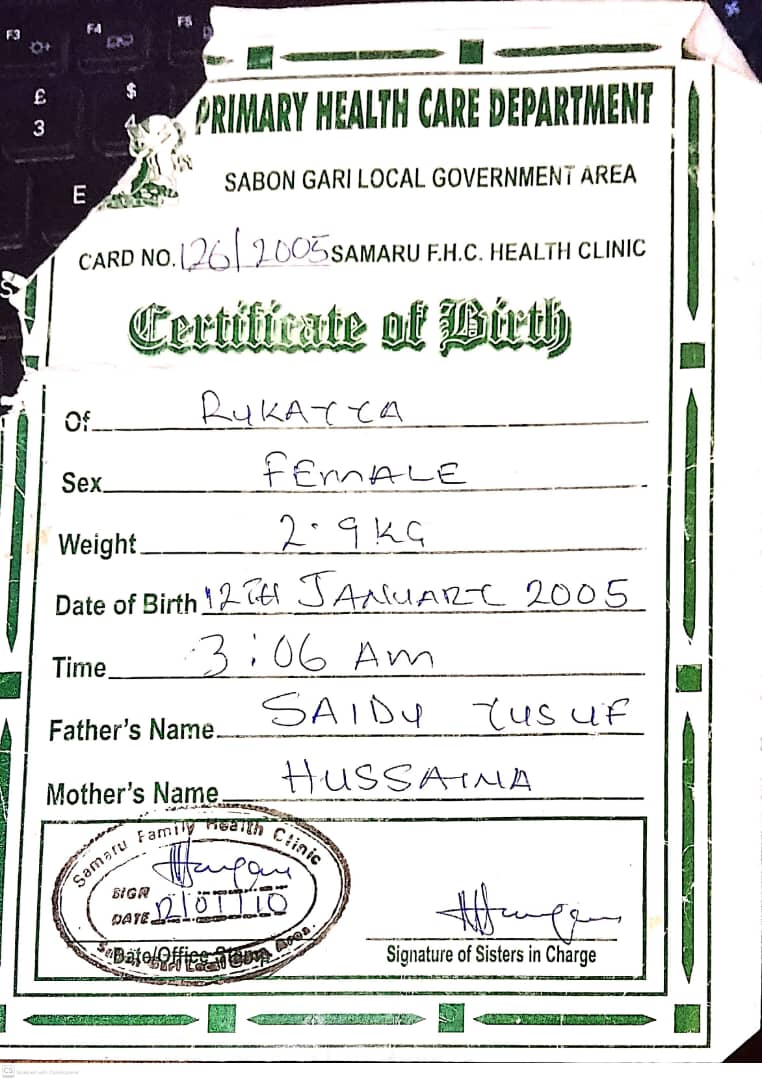 F3
F4
F5
£
3
$
4
E
PRIMARY HEALTH CARE DEPARTMENT
SABON GARI LOCAL GOVERNMENT AREA
CARD NO. 126/2005 SAMARU F.H.C. HEALTH CLINIC
Certificate of Birth
Of RUKAYYA
Sex FEMALE
Weight 2.9KG
Date of Birth 12TH JANUARY 2005
Time 3:06 AM
Father's Name SAIDU YUSUF
Mother's Name HUSSAINA
Samaru Family Health Clinic
SIGN
DATE 12/01/10
Date/Office Stamp
Sabon Gari Local Govt. Area.
Signature of Sisters in Charge
CS Scanned with CamScanner